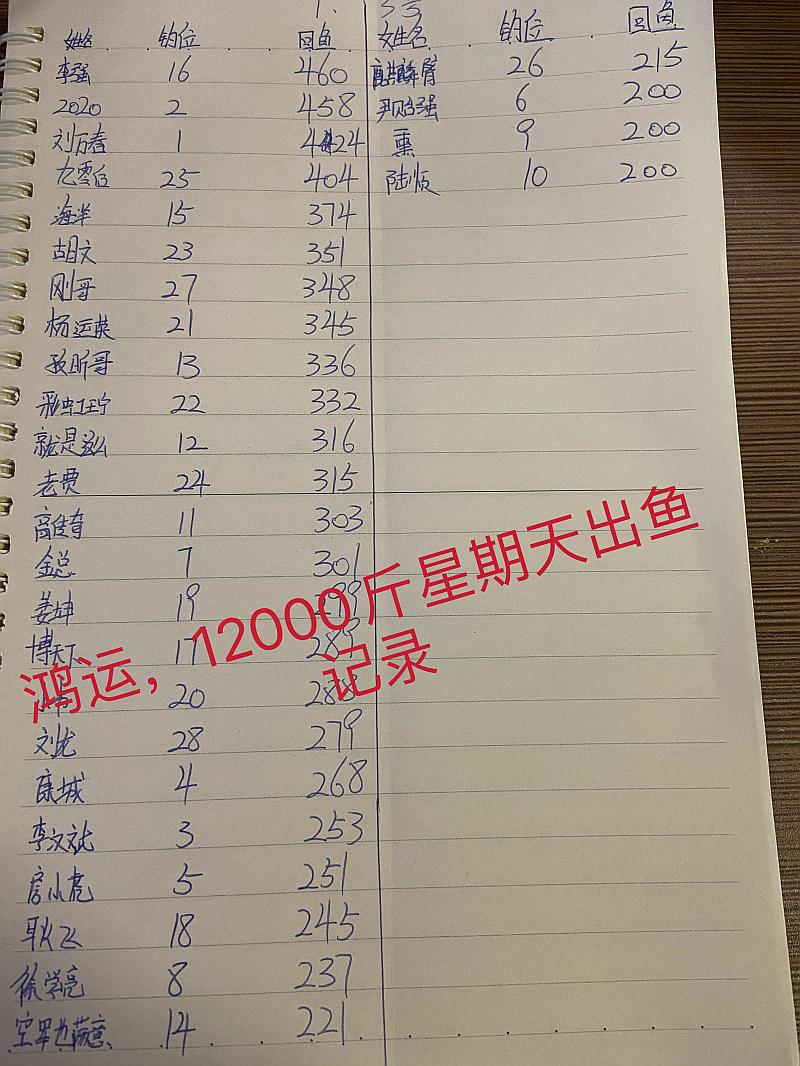 姓名 钓位 回鱼
李强 16 460
2020 2 458
刘万春 1 424
九零后 25 404
海洋 15 374
胡文 23 351
刚哥 27 348
杨运英 21 345
孜昕哥 13 336
彩虹 22 332
就是这么 12 316
老费 24 315
高佳奇 11 303
金总 7 301
姜坤 19 299
博天下 17 289
20 288
刘龙 28 279
康城 4 268
李文斌 3 253
房小虎 5 251
耿飞 18 245
徐学亮 8 237
空军也满意 14 221
姓名 钓位 回鱼
麒麟臂 26 215
尹贻强 6 200
熏 9 200
陆顺 10 200
鸿运，12000斤星期天出鱼
记录